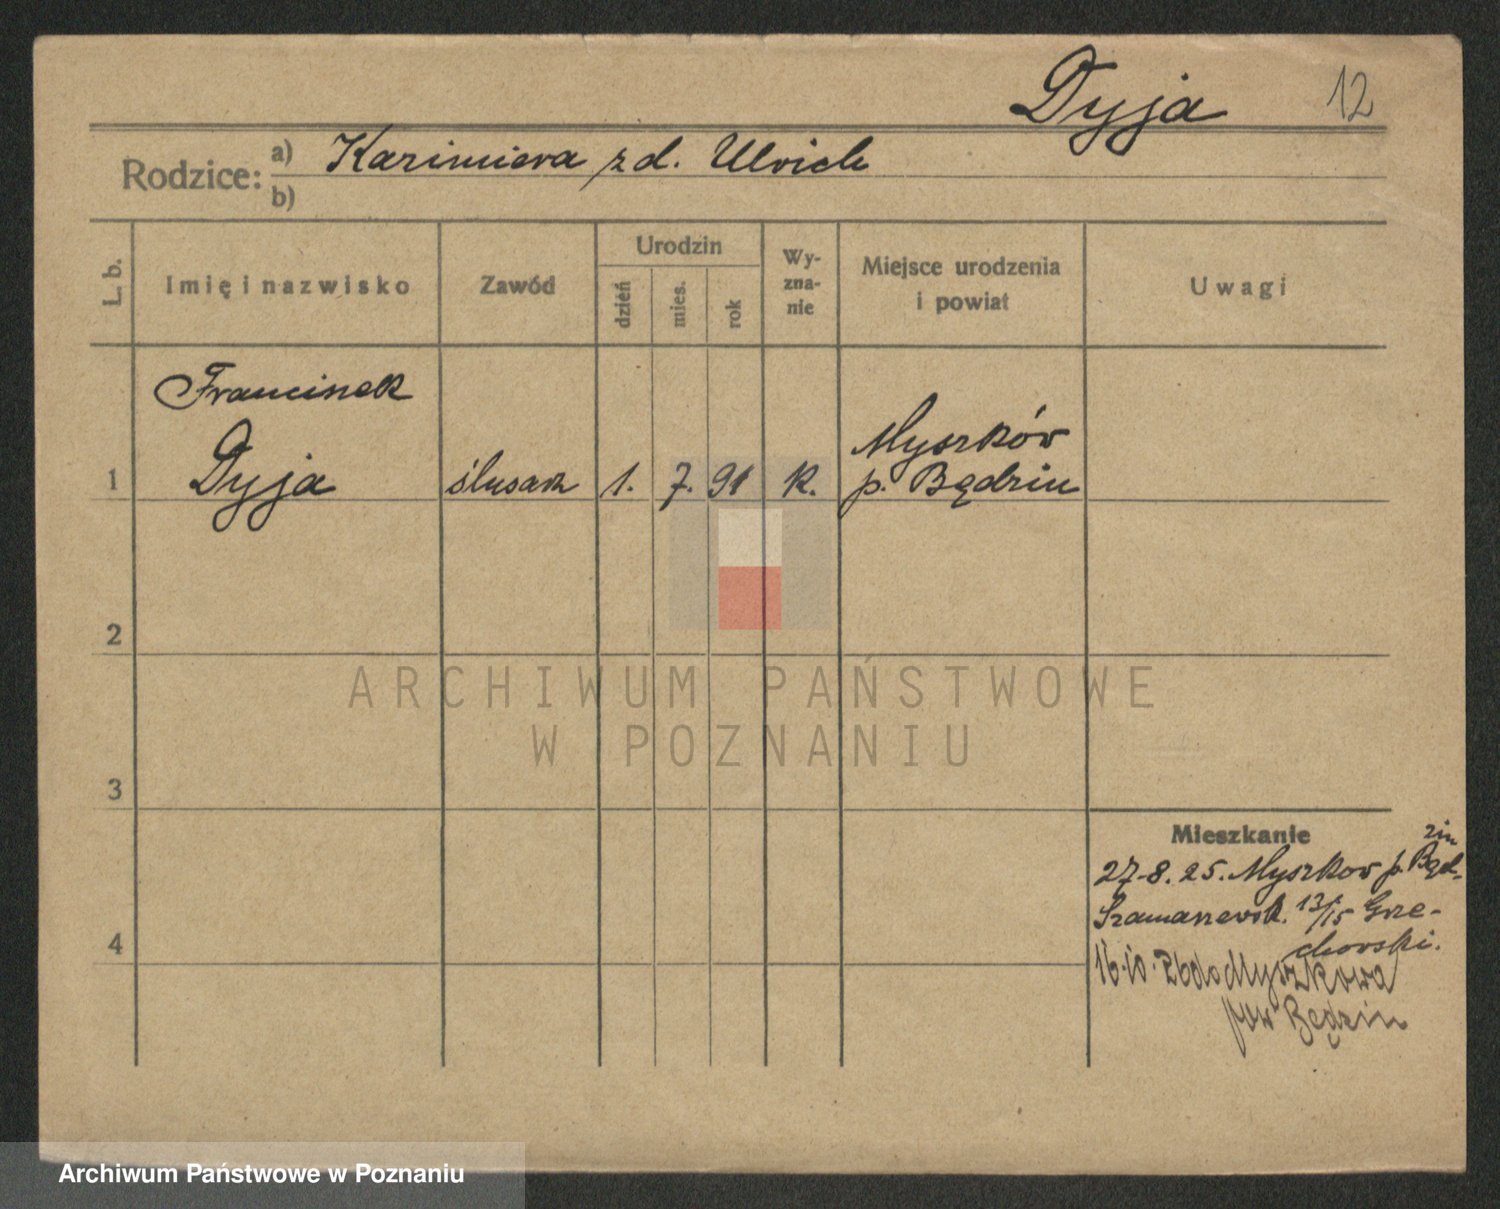 Dyja 12
Rodzice: a) Kazimiera zd. Ulrich
b)
L. b. Imię i nazwisko Zawód Urodzin dzień mies. rok Wy-zna-nie Miejsce urodzenia i powiat Uwagi
Franciszek
Dyja
1 ślusarz 1. 7. 91 k. Myszków
p. Będzin
2
3
4
Mieszkanie
27-8.25. Myszkow p. Będ-
zin
Szamarzewsk. 13/15 Grze-
chowski.
16.10. do Myszkowa
pow Będzin
ARCHIWUM PAŃSTWOWE
W POZNANIU
Archiwum Państwowe w Poznaniu